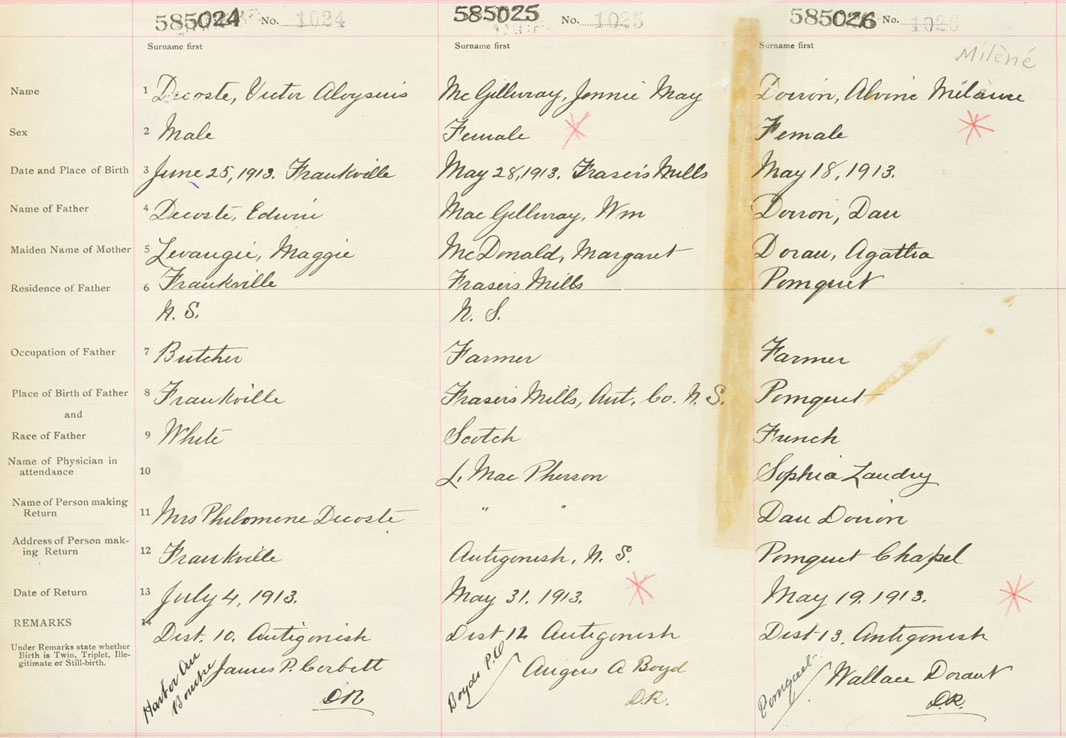 585024 No. 1024 585025 No. 1025 585026 No. 1026
Surname first Surname first Surname first
Milèné
Name 1 Decoste, Victor Aloysius McGillivray, Jennie May Doiron, Alvine Mélanise
Sex 2 Male Female Female
Date and Place of Birth 3 June 25, 1913. Frankville May 28, 1913. Frasers Mills May 18, 1913.
Name of Father 4 Decoste, Edwin MacGillivray, Wm Doiron, Dan
Maiden Name of Mother 5 Levangie, Maggie McDonald, Margaret Doran, Agatha
Residence of Father 6 Frankville Frasers Mills Pomquet
N. S. N. S.
Occupation of Father 7 Butcher Farmer Farmer
Place of Birth of Father 8 Frankville Frasers Mills, Ant. Co. N. S. Pomquet
and
Race of Father 9 White Scotch French
Name of Physician in
attendance 10 J. MacPherson Sophia Landry
Name of Person making
Return 11 Mrs Philomene Decoste " " Dan Doiron
Address of Person mak-
ing Return 12 Frankville Antigonish, N. S. Pomquet Chapel
Date of Return 13 July 4, 1913. May 31. 1913. May 19. 1913.
REMARKS 14 Dist. 10. Antigonish Dist 12 Antigonish Dist 13. Antigonish
Under Remarks state whether
Birth is Twin, Triplet, Ille-
gitimate or Still-birth.
Harbor Au Bouche James P. Corbett Boyds P.O Angus A Boyd Pomquet Wallace Dorant
D.R. D.R. D.R.